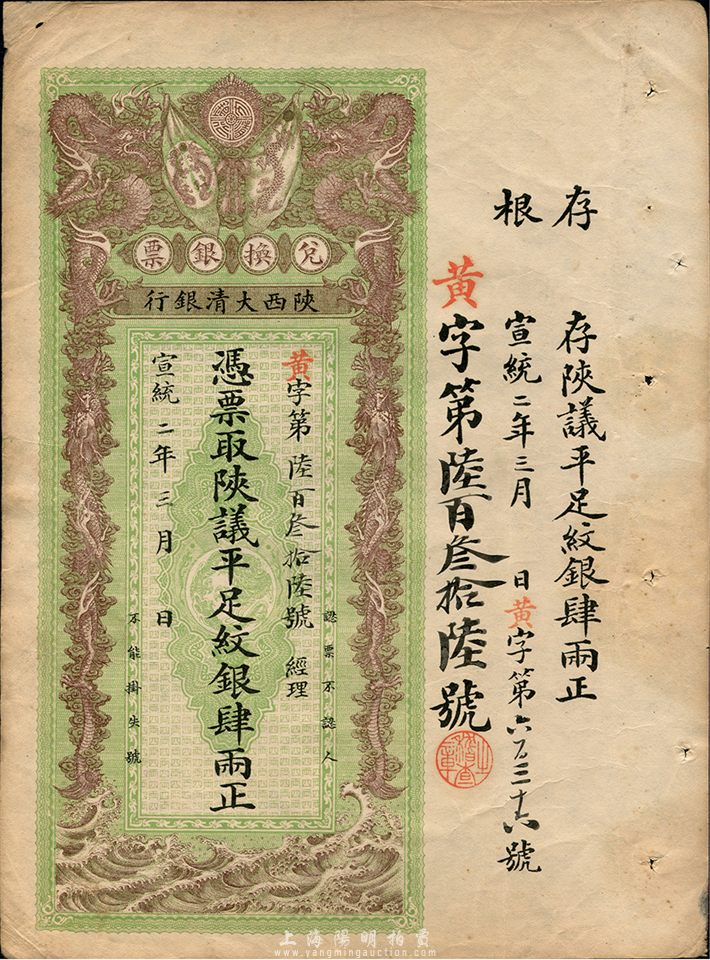 存根
存陝議平足紋銀肆兩正
宣統二年三月　日黃字第六百三十六號
黃字第陸百叁拾陸號
兌換銀票
陝西大清銀行
認票不認人
黃字第陸百叁拾陸號　經理
憑票取陝議平足紋銀肆兩正
宣統二年三月　日
不能掛失號
上海陽明拍賣
www.yangmingauction.com